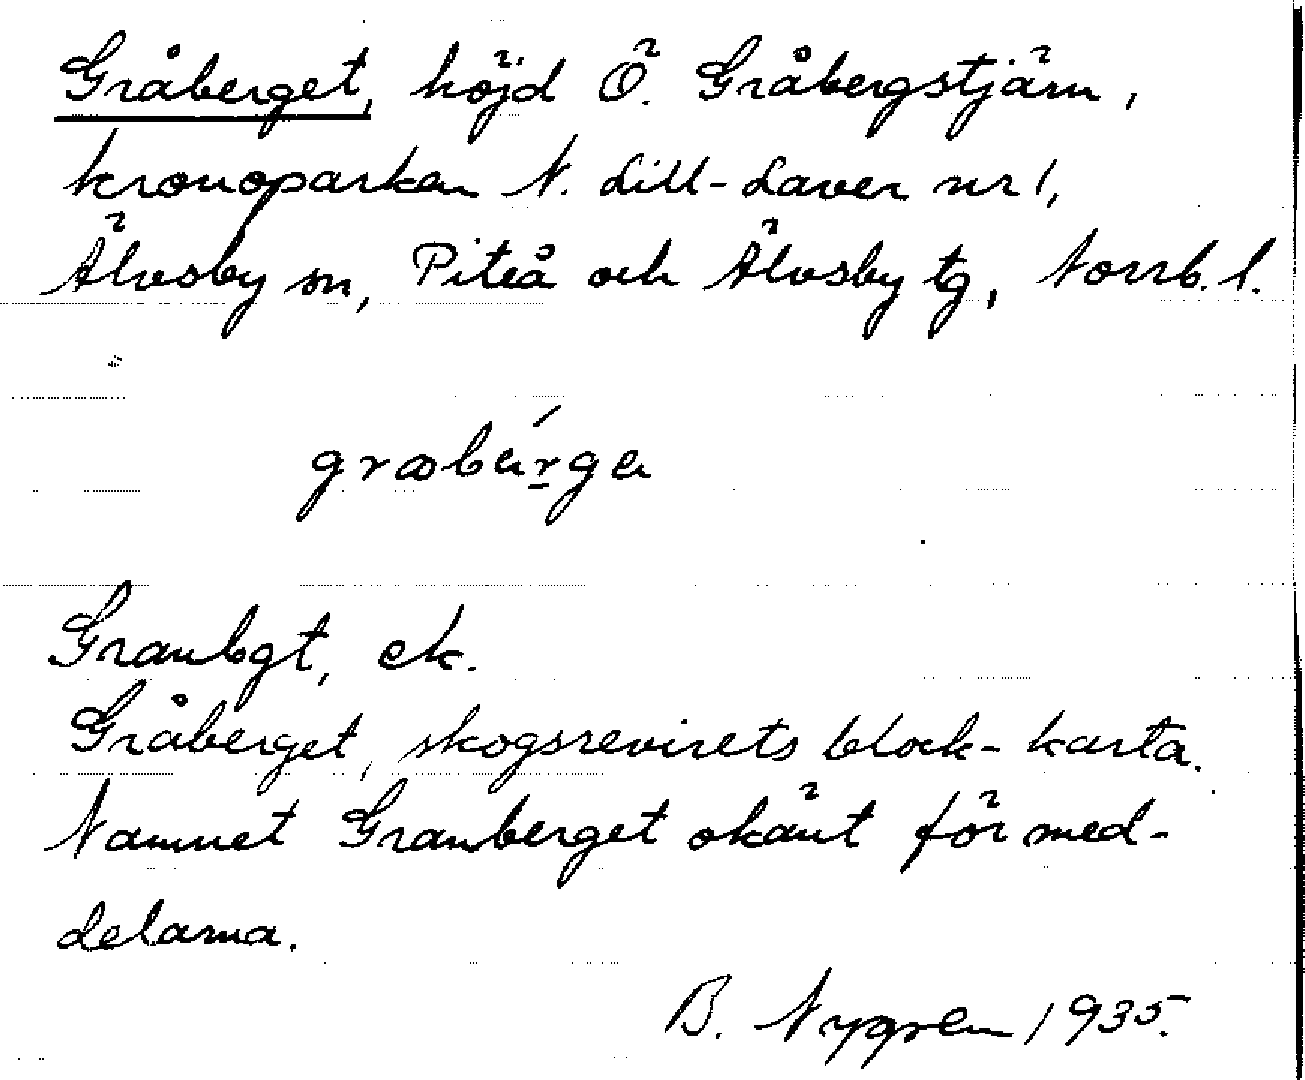 Gråberget, höjd Ö. Gråbergstjärn,
kronoparken N. Lill-Laver nr 1,
Älvsby sn, Piteå och Älvsby tg, Norrb. l.
Granbgt, ek.
Gråberget, skogsrevirets block-karta.
Namnet Granberget okänt för med-
delarna.
B. Nygren 1935.